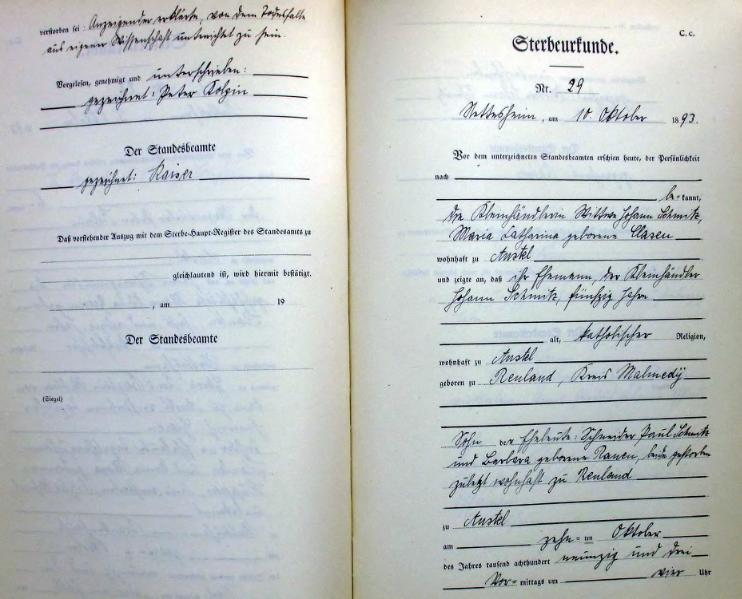 verstorben sei: Anzeigender erklärte, von dem Todesfalle
aus eigener Wissenschaft unterrichtet zu sein.
Vorgelesen, genehmigt und unterschrieben:
gezeichnet: Peter Kolpin
Der Standesbeamte
gezeichnet: Kaiser
Daß vorstehender Auszug mit dem Sterbe-Haupt-Register des Standesamts zu
gleichlautend ist, wird hiermit bestätigt.
, am 19
Der Standesbeamte
(Siegel)
C. c.
Sterbeurkunde.
Nr. 29
Nettesheim, am 10. Oktober 1893.
Vor dem unterzeichneten Standesbeamten erschien heute, der Persönlichkeit
nach
be-kannt,
die Kleinhändlerin Wittwe Johann Schmitz,
Maria Catharina geborene Clasen
wohnhaft zu Anstel
und zeigte an, daß ihr Ehemann, der Kleinhändler
Johann Schmitz, fünfzig Jahre
alt, katholischer Religion,
wohnhaft zu Anstel
geboren zu Reuland, Kreis Malmedy
Sohn der Eheleute: Schneider Paul Schmitz
und Barbara geborene, beide gestorben
zuletzt wohnhaft zu Reuland
zu Anstel
am zehn-ten Oktober
des Jahres tausend achthundert neunzig und drei
Vor-mittags um vier Uhr